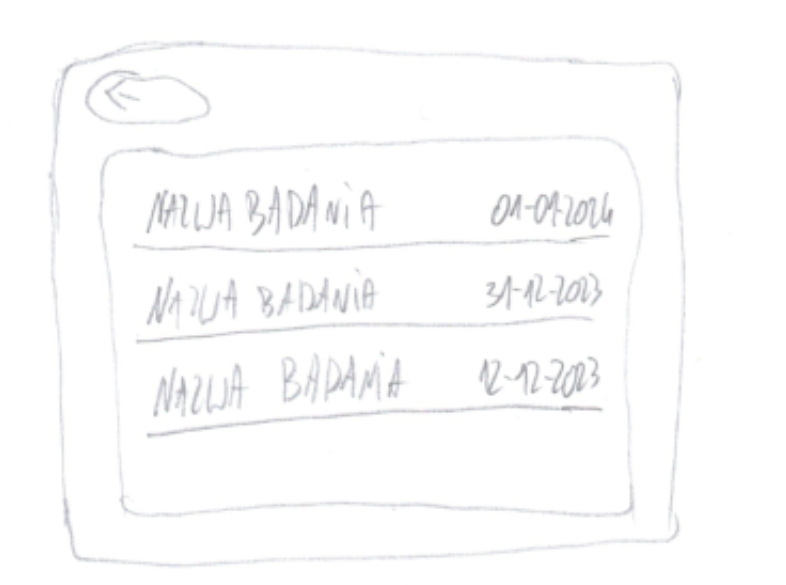 NAZWA BADANIA 01-01-2024
NAZWA BADANIA 31-12-2023
NAZWA BADANIA 12-12-2023